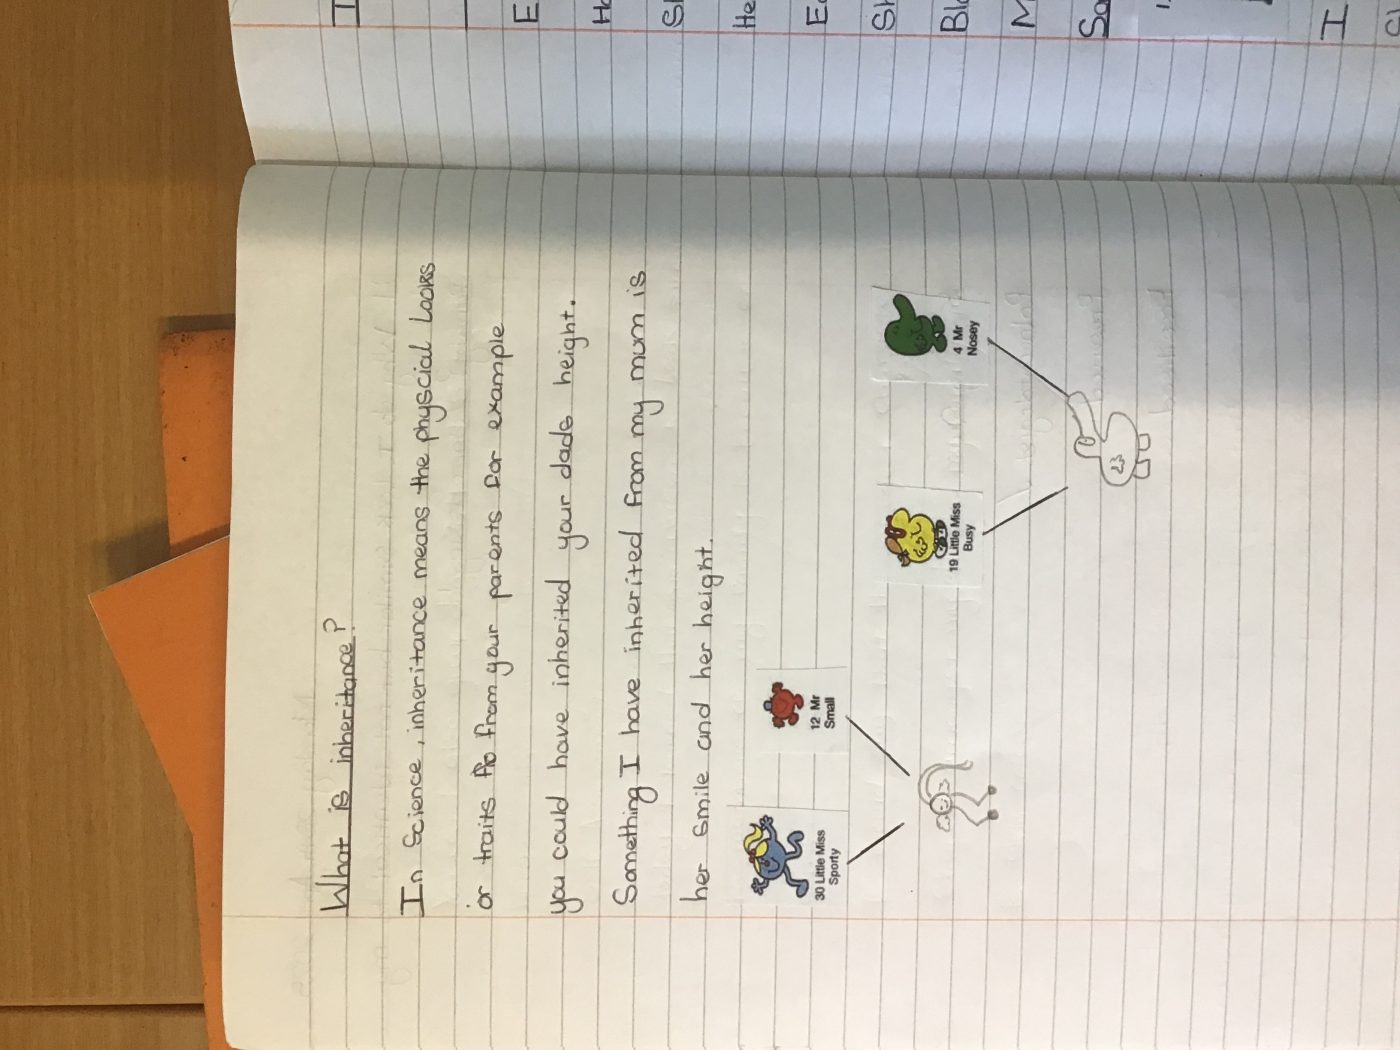 What is inheritance?
In Science, inheritance means the physcial Looks
or traits from your parents for example
you could have inherited your dads height.
Something I have inherited from my mum is
her smile and her height.
30 Little Miss
Sporty
12 Mr
Small
19 Little Miss
Busy
4 Mr
Nosey